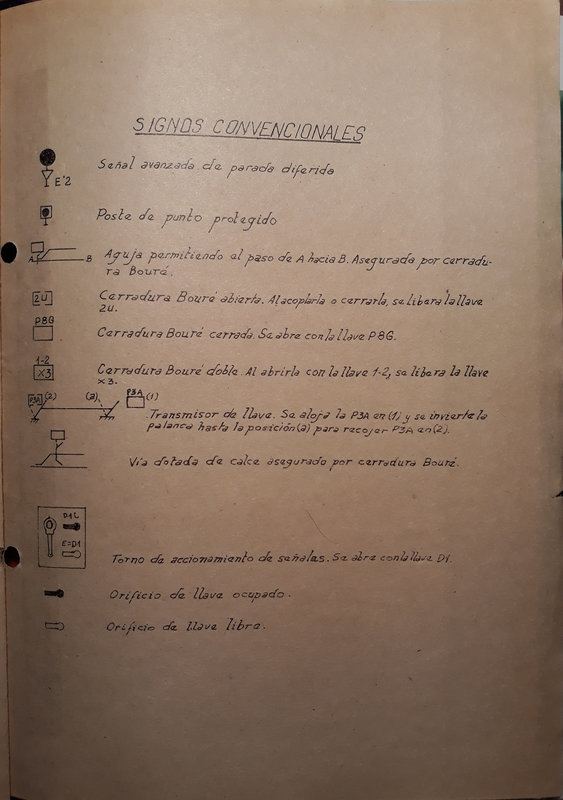 SIGNOS CONVENCIONALES
E'2
Señal avanzada de parada diferida
Poste de punto protegido
A B
Aguja permitiendo el paso de A hacia B. Asegurada por cerradu-
ra Bouré.
2U
Cerradura Bouré abierta. Al acoplarla o cerrarla, se libera la llave
2U.
P8G
Cerradura Bouré cerrada. Se abre con la llave P8G.
1-2
X3
Cerradura Bouré doble. Al abrirla con la llave 1-2, se libera la llave
X3.
P3A (2) (a) P3A (1)
Transmisor de llave. Se aloja la P3A en (1) y se invierte la
palanca hasta la posición (a) para recojer P3A en (2).
Vía dotada de calce asegurado por cerradura Bouré.
E=D1
Torno de accionamiento de señales. Se abre con la llave D1.
Orificio de llave ocupado.
Orificio de llave libre.